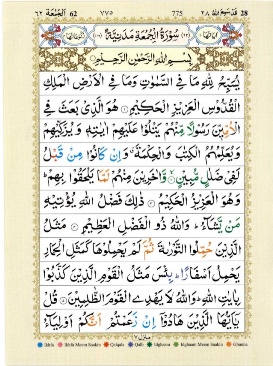 ٦٢ الجمعة 62 ٧٧٥ 775 قد سمع الله ٢٨ 28
سُوْرَةُ الْجُمُعَةِ مَدَنِيَّةٌ
بِسْمِ اللّٰهِ الرَّحْمٰنِ الرَّحِيْمِ
يُسَبِّحُ لِلّٰهِ مَا فِي السَّمٰوٰتِ وَمَا فِي الْاَرْضِ الْمَلِكِ
الْقُدُّوْسِ الْعَزِيْزِ الْحَكِيْمِ ۝ هُوَ الَّذِيْ بَعَثَ فِي
الْاُمِّيّٖنَ رَسُوْلًا مِّنْهُمْ يَتْلُوْا عَلَيْهِمْ اٰيٰتِهٖ وَيُزَكِّيْهِمْ
وَيُعَلِّمُهُمُ الْكِتٰبَ وَالْحِكْمَةَ ۗ وَاِنْ كَانُوْا مِنْ قَبْلُ
لَفِيْ ضَلٰلٍ مُّبِيْنٍ ۝ وَّاٰخَرِيْنَ مِنْهُمْ لَمَّا يَلْحَقُوْا بِهِمْ ؕ
وَهُوَ الْعَزِيْزُ الْحَكِيْمُ ۝ ذٰلِكَ فَضْلُ اللّٰهِ يُؤْتِيْهِ
مَنْ يَّشَآءُ ؕ وَاللّٰهُ ذُو الْفَضْلِ الْعَظِيْمِ ۝ مَثَلُ
الَّذِيْنَ حُمِّلُوا التَّوْرٰىةَ ثُمَّ لَمْ يَحْمِلُوْهَا كَمَثَلِ الْحِمَارِ
يَحْمِلُ اَسْفَارًا ؕ بِئْسَ مَثَلُ الْقَوْمِ الَّذِيْنَ كَذَّبُوْا
بِاٰيٰتِ اللّٰهِ ؕ وَاللّٰهُ لَا يَهْدِي الْقَوْمَ الظّٰلِمِيْنَ ۝ قُلْ
يٰٓاَيُّهَا الَّذِيْنَ هَادُوْٓا اِنْ زَعَمْتُمْ اَنَّكُمْ اَوْلِيَآءُ
منزل ٧
Ikhfa Ikhfa Meem Saakin Qalqala Qalb Idghaam Idghaam Meem Saakin Ghunna